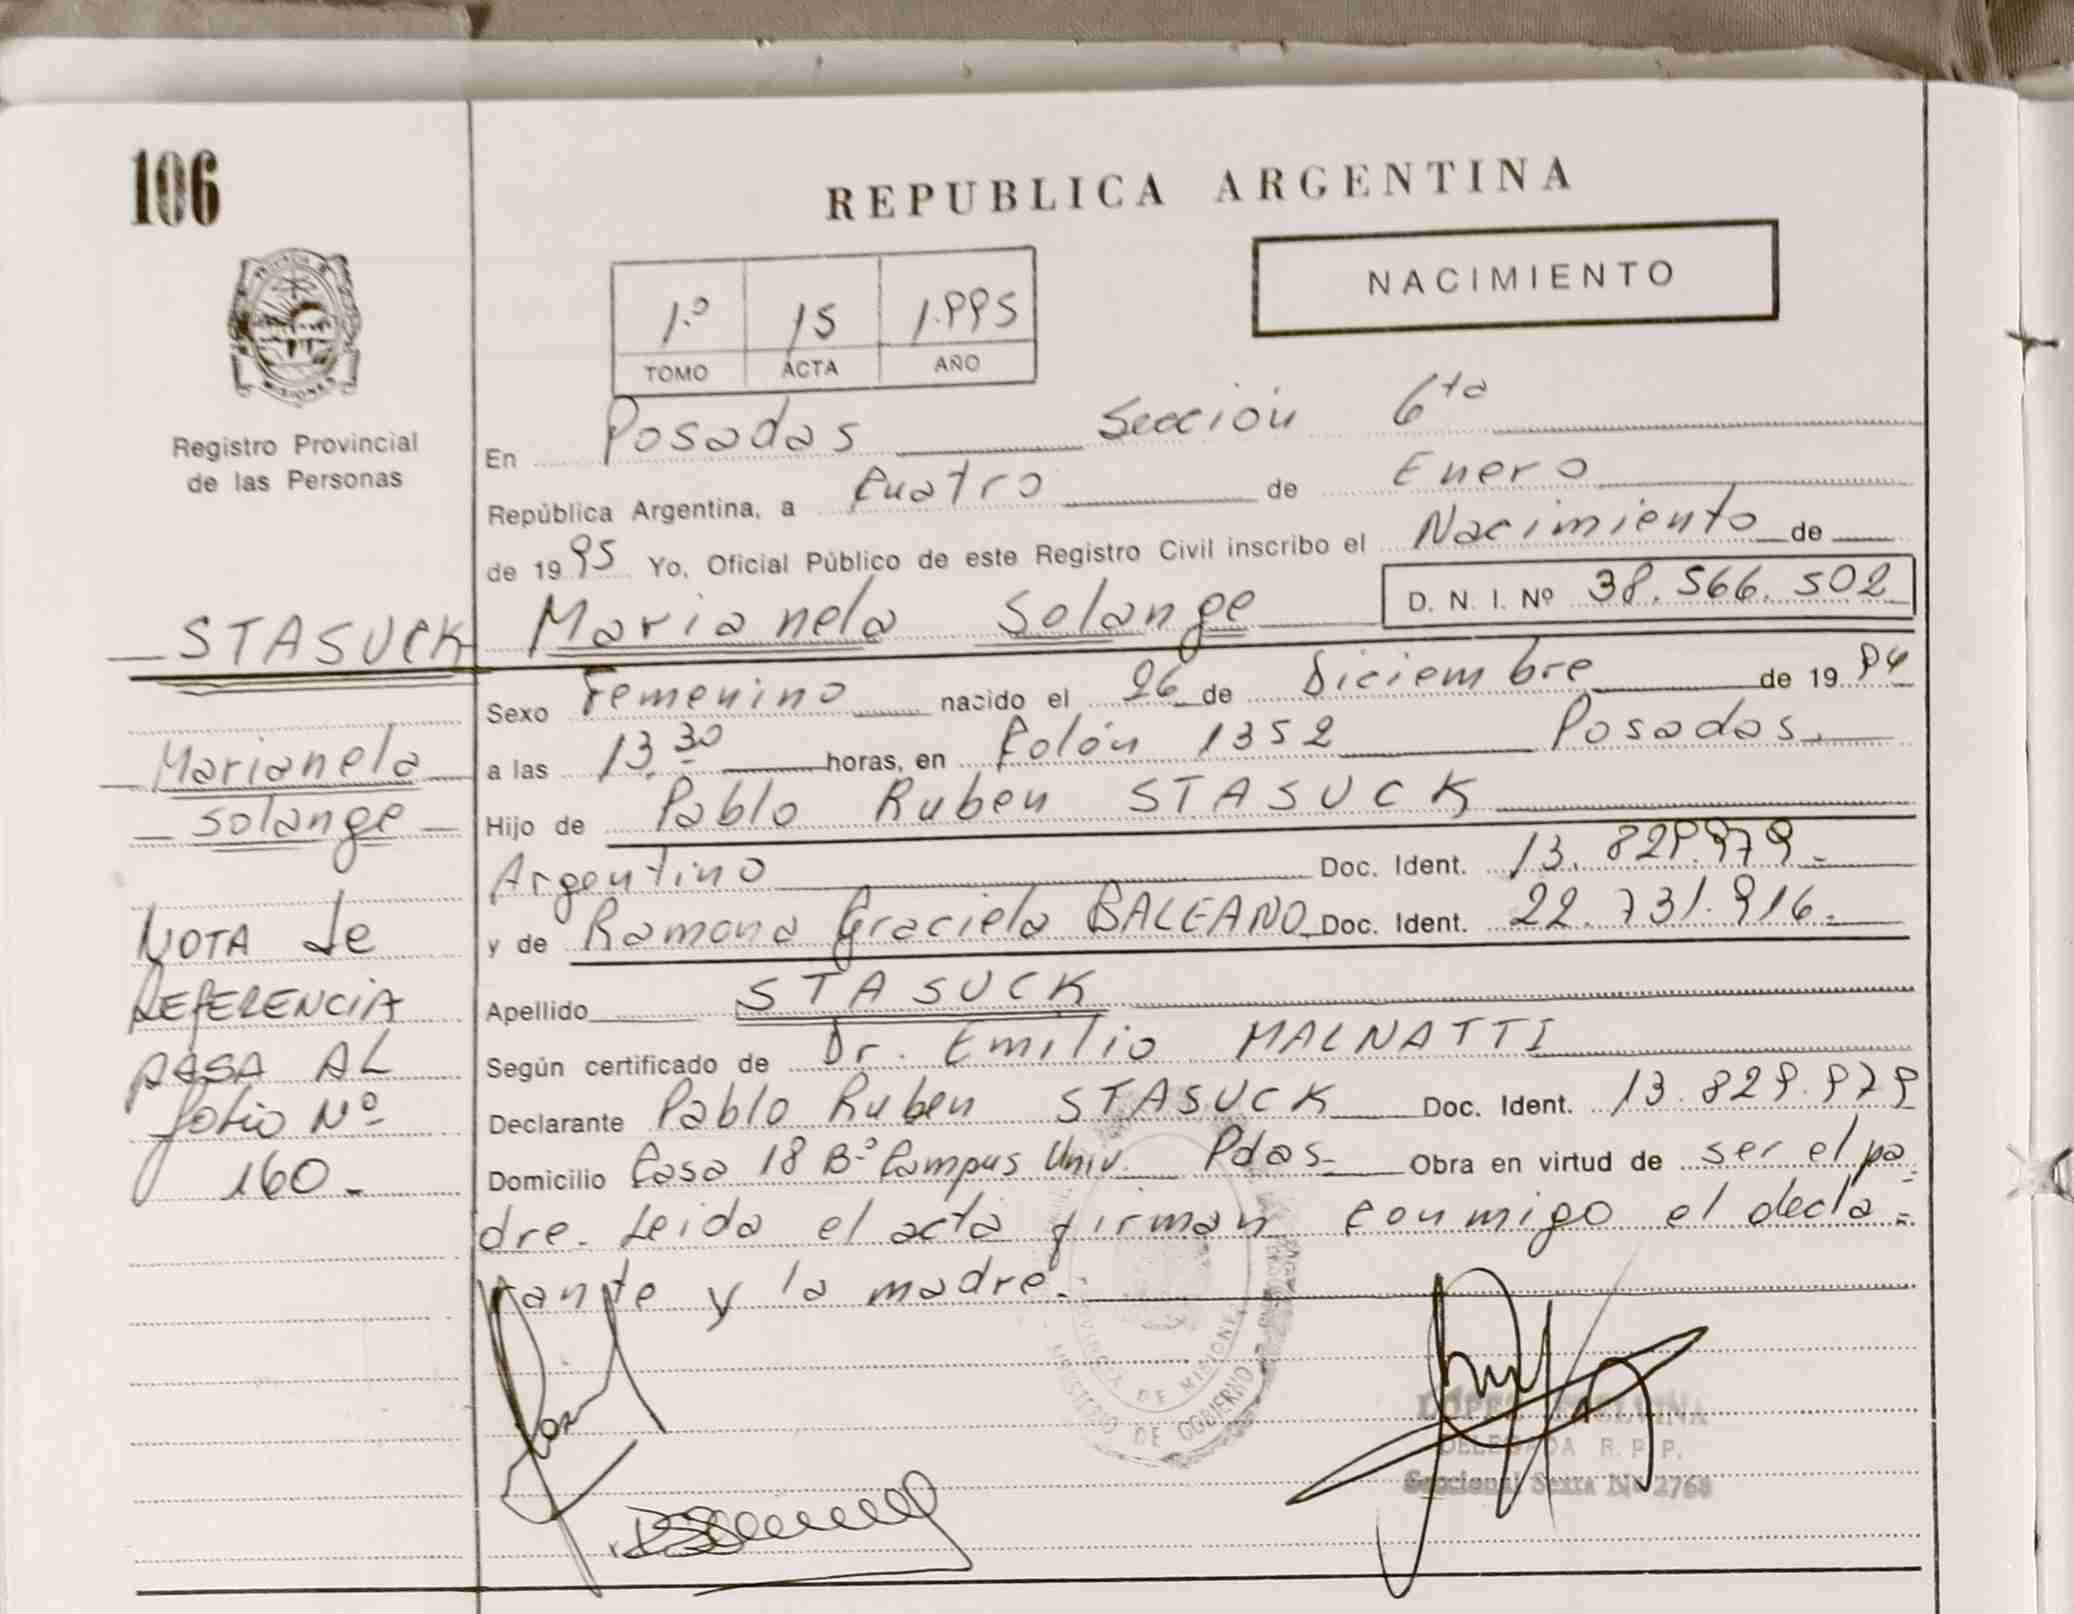 106
REPUBLICA ARGENTINA
NACIMIENTO
1.º 15 1.995
TOMO ACTA AÑO
Registro Provincial
de las Personas
En Posadas Sección 6ta
República Argentina, a Cuatro de Enero
de 1995 Yo, Oficial Público de este Registro Civil inscribo el Nacimiento de
D. N. I. Nº 38.566.502
STASUCK Marianela Solange
Sexo Femenino nacido el 26 de Diciembre de 1994
a las 13.30 horas, en Colón 1352 Posadas.
Marianela
Solange
Hijo de Pablo Ruben STASUCK
Argentino Doc. Ident. 13.829.979.-
y de Ramona Graciela BALEANO Doc. Ident. 22.731.916.-
Apellido STASUCK
Según certificado de Dr. Emilio MALNATTI
Declarante Pablo Ruben STASUCK Doc. Ident. 13.829.979
Domicilio Casa 18 B.º Campus Univ. Pdas- Obra en virtud de ser el pa
dre. Leida el acta firman conmigo el decla-
rante y la madre.-
NOTA de
REFERENCIA
PASA AL
folio Nº
160.-
MINISTERIO DE GOBIERNO
DE MISIONES
LOPEZ
DELEGADA R. P. P.
Seccional Sexta Nº 2768